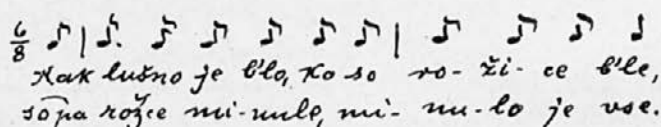 6/8
Kak lušno je b'lo, ko so ro- ži- ce b'le,
so pa rožce mi- nule, mi- nu- lo je vse.